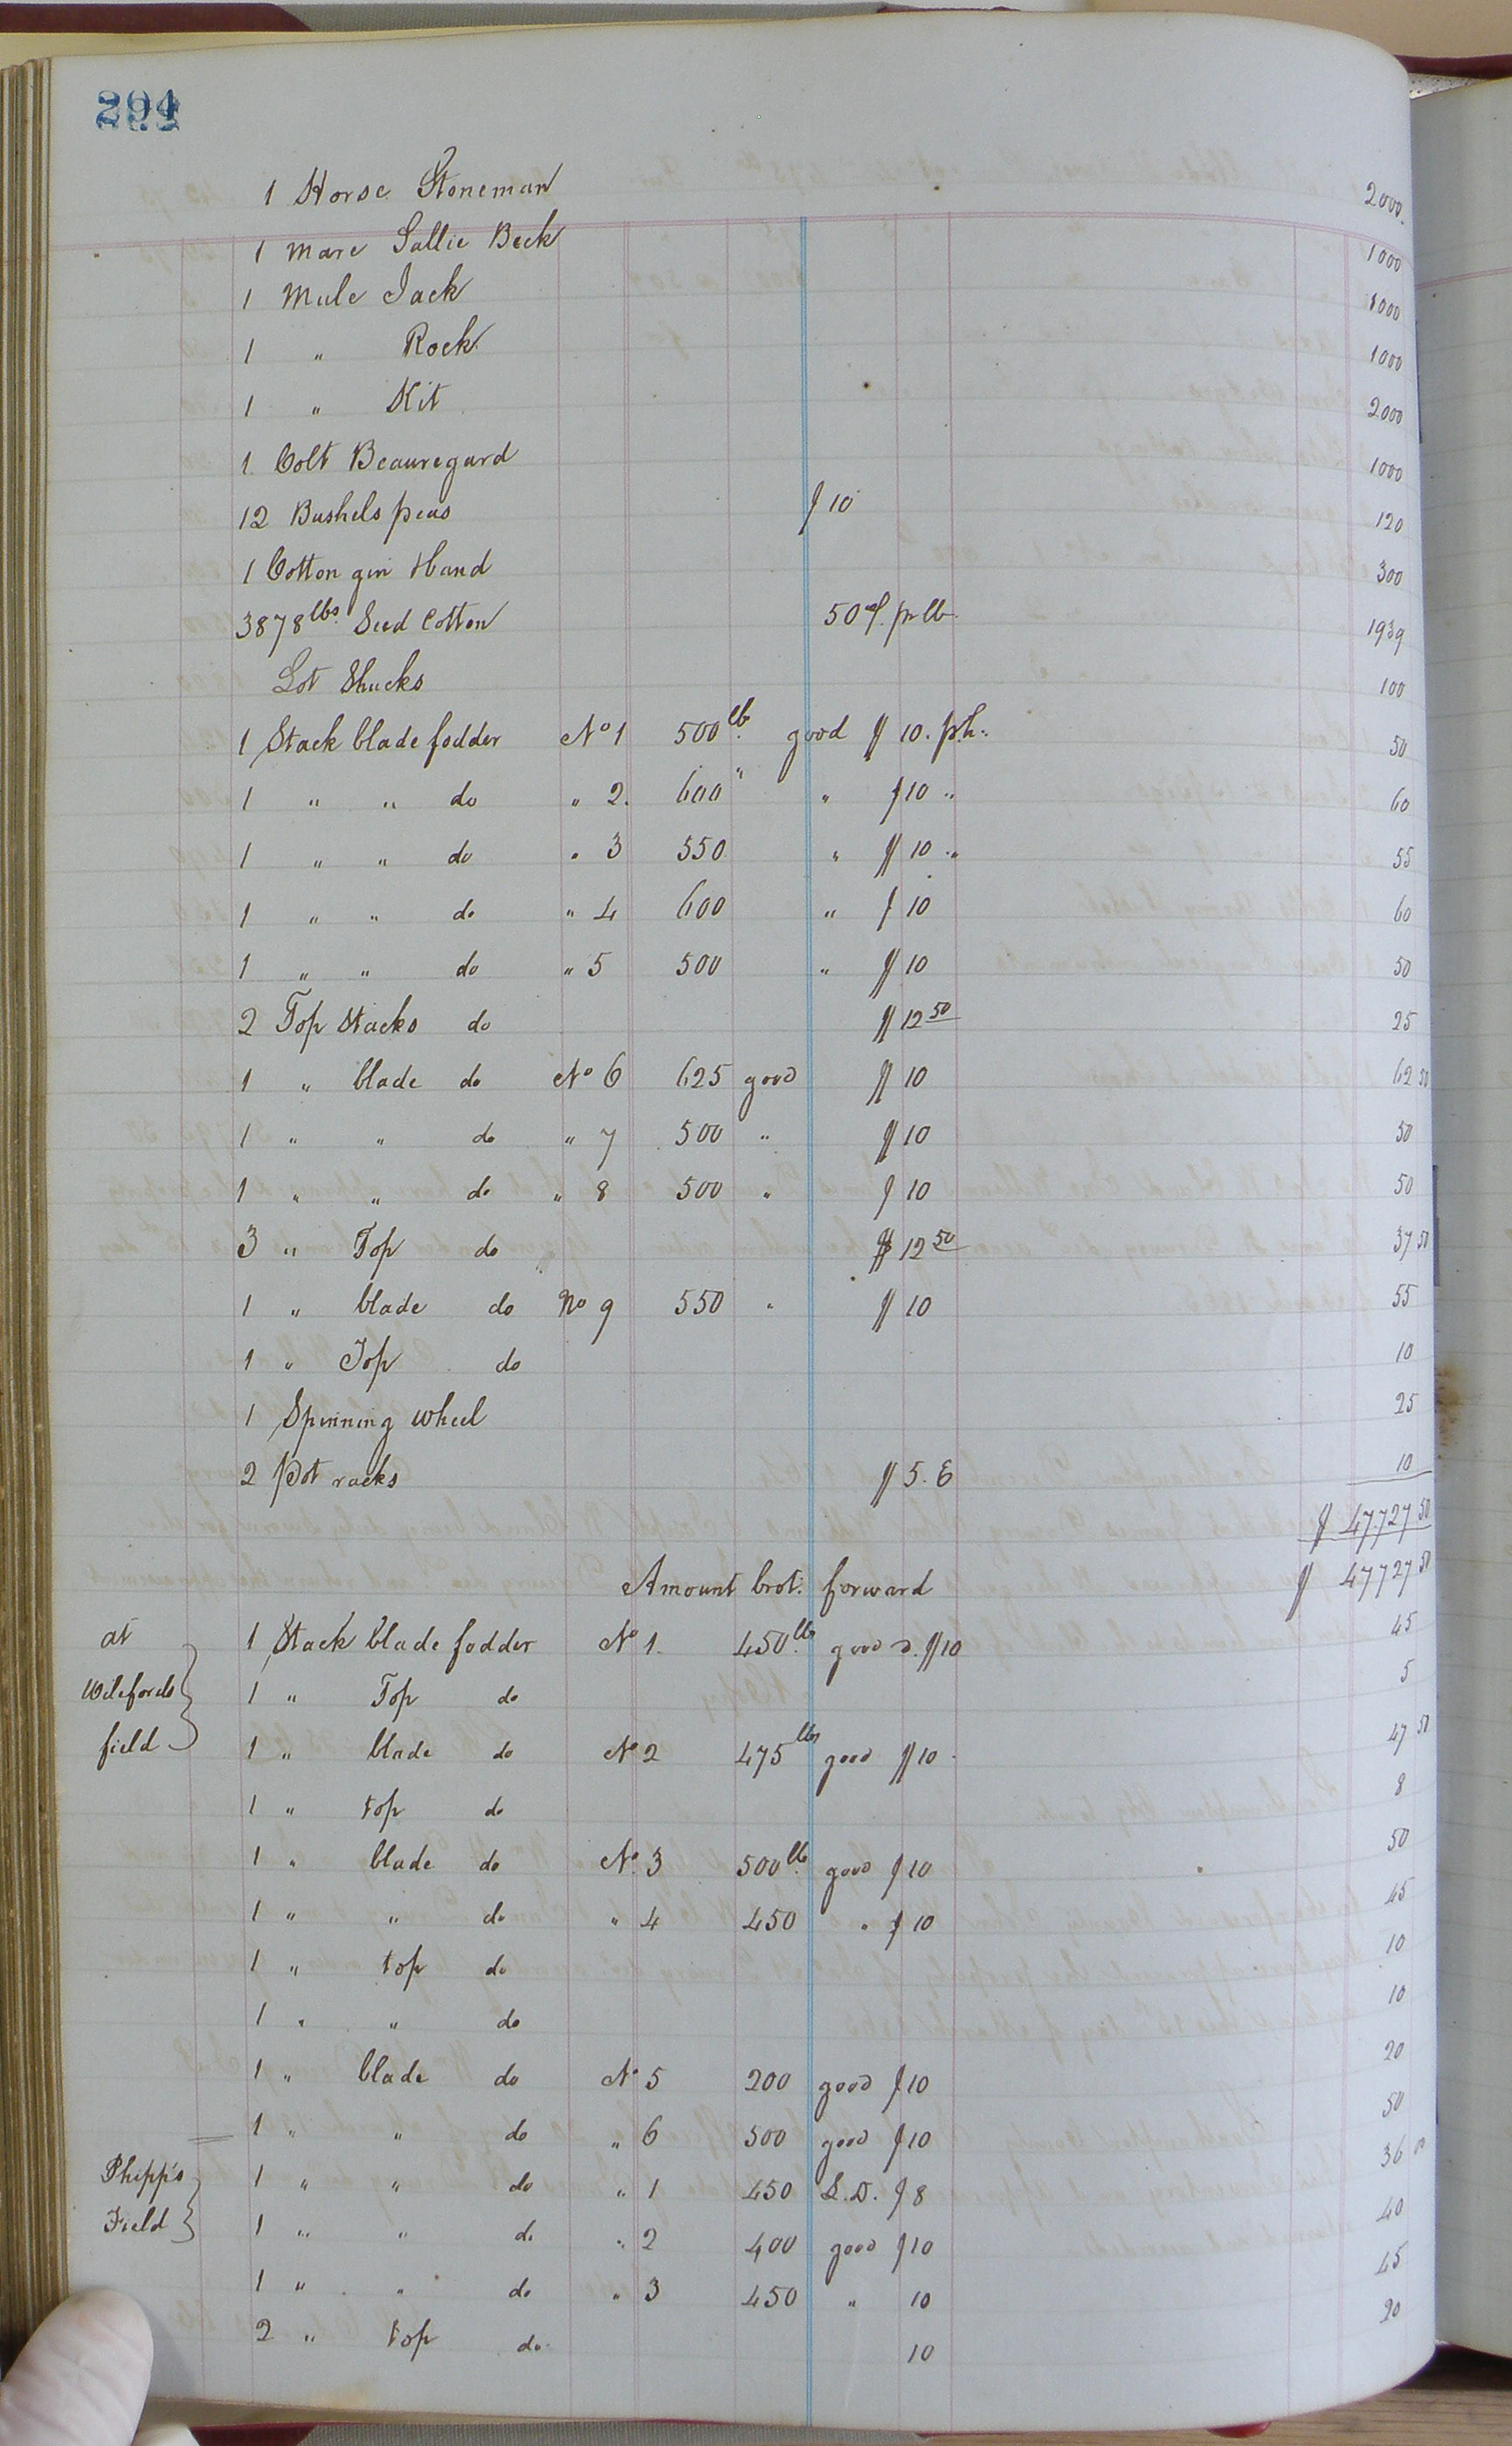 294
1 Horse Stoneman 2000.
1 Mare Sallie Beck 1000
1 Mule Jack 1000
1 " Rock 1000
1 " Kit 2000
1 Colt Beauregard 1000
12 Bushels peas $10 120
1 Cotton gin Hand 300
3878 lbs. Seed Cotton 50 ¢. pr lb. 1939
Lot Shucks 100
1 Stack blade fodder No 1 500 lb. good $10. ph. 50
1 " " do " 2. 600 " " $10 " 60
1 " " do " 3 550 " $10 " 55
1 " " do " 4 600 " $10 60
1 " " do " 5 500 " $10 50
2 Top Stacks do $12 50 25
1 " blade do No 6 625 good $10 62 50
1 " " do " 7 500 " $10 50
1 " " do " 8 500 " $10 50
3 " Top do $12 50 37 50
1 " blade do No 9 550 " $10 55
1 " Top do 10
1 Spinning wheel 25
2 Pot racks $5. E 10
$ 47.727 50
Amount brot. forward $ 47727 50
at 1 Stack blade fodder No 1. 450 lb. good $10 45
field 1 " Top do 5
1 " blade do No 2 475 lbs good $10 47 50
1 " top do 8
1 " blade do No. 3 500 lb. good $10 50
1 " " do " 4 450 " $10 45
1 " top do 10
1 " " do 10
1 " blade do No 5 200 good $10 20
1 " " do " 6 500 good $10 50
Phipp's 1 " " do " 1 450 S.D. $8 36 00
Field 1 " " do " 2 400 good $10 40
1 " " do " 3 450 " 10 45
2 " top do 10 20